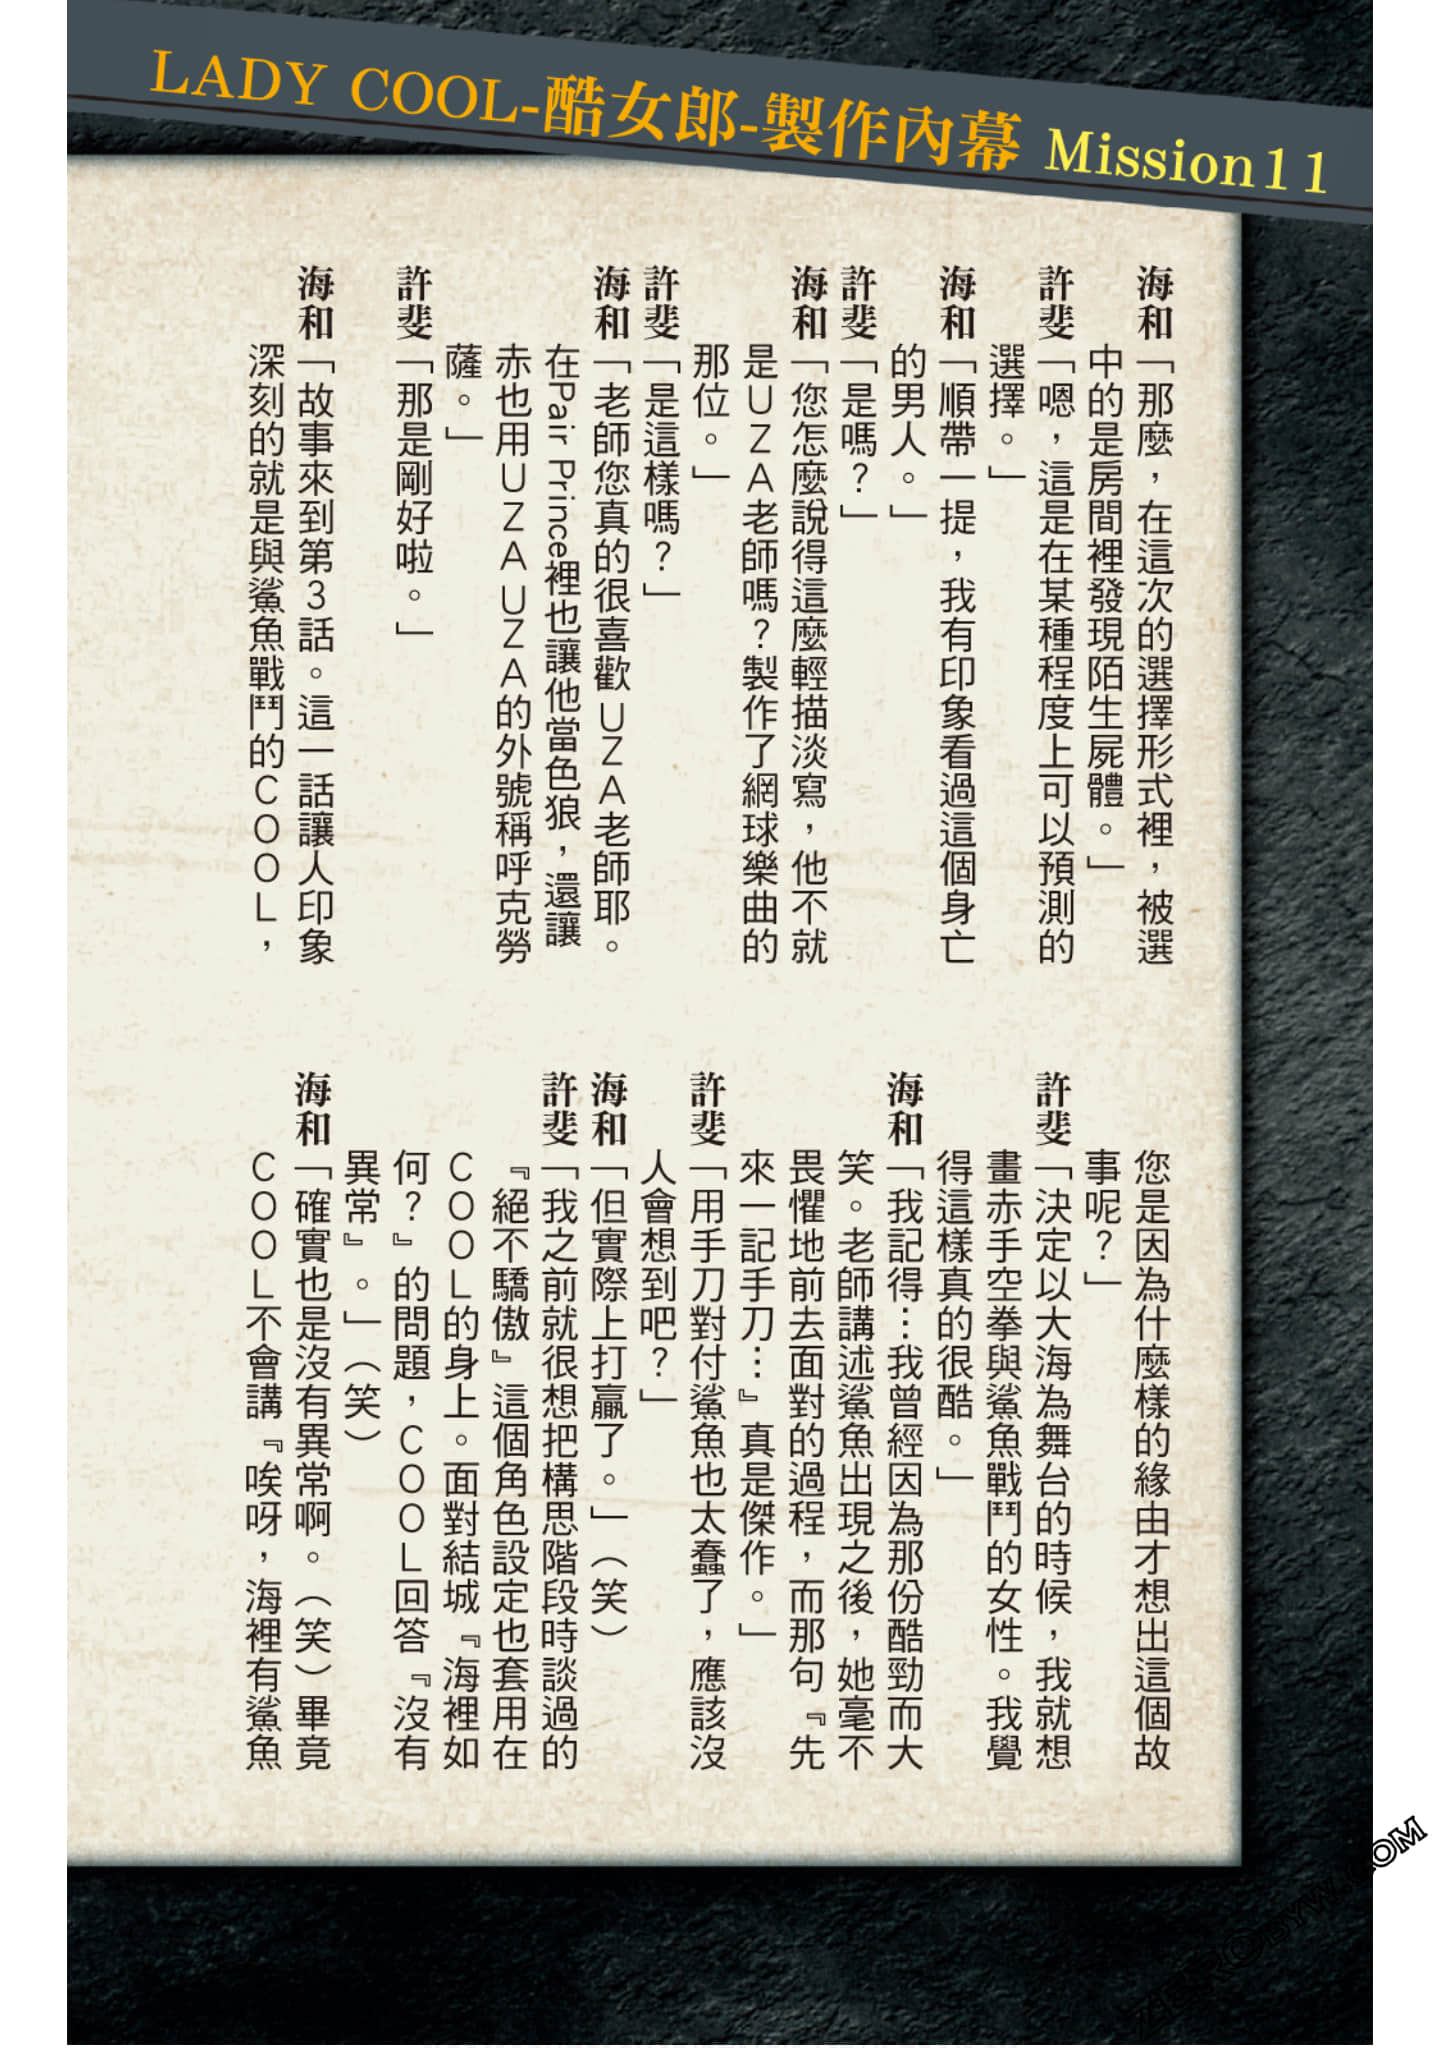 LADY COOL-酷女郎-製作內幕 Mission11
海和「那麼，在這次的選擇形式裡，被選
中的是房間裡發現陌生屍體。」
許斐「嗯，這是在某種程度上可以預測的
選擇。」
海和「順帶一提，我有印象看過這個身亡
的男人。」
許斐「是嗎？」
海和「您怎麼說得這麼輕描淡寫，他不就
是UZA老師嗎？製作了網球樂曲的
那位。」
許斐「是這樣嗎？」
海和「老師您真的很喜歡UZA老師耶。
在Pair Prince裡也讓他當色狼，還讓
赤也用UZAUZA的外號稱呼克勞
薩。」
許斐「那是剛好啦。」
海和「故事來到第3話。這一話讓人印象
深刻的就是與鯊魚戰鬥的COOL，
您是因為什麼樣的緣由才想出這個故
事呢？」
許斐「決定以大海為舞台的時候，我就想
畫赤手空拳與鯊魚戰鬥的女性。我覺
得這樣真的很酷。」
海和「我記得…我曾經因為那份酷勁而大
笑。老師講述鯊魚出現之後，她毫不
畏懼地前去面對的過程，而那句『先
來一記手刀…』真是傑作。」
許斐「用手刀對付鯊魚也太蠢了，應該沒
人會想到吧？」
海和「但實際上打贏了。」（笑）
許斐「我之前就很想把構思階段時談過的
『絕不驕傲』這個角色設定也套用在
COOL的身上。面對結城『海裡如
何？』的問題，COOL回答『沒有
異常』。」（笑）
海和「確實也是沒有異常啊。（笑）畢竟
COOL不會講『唉呀，海裡有鯊魚